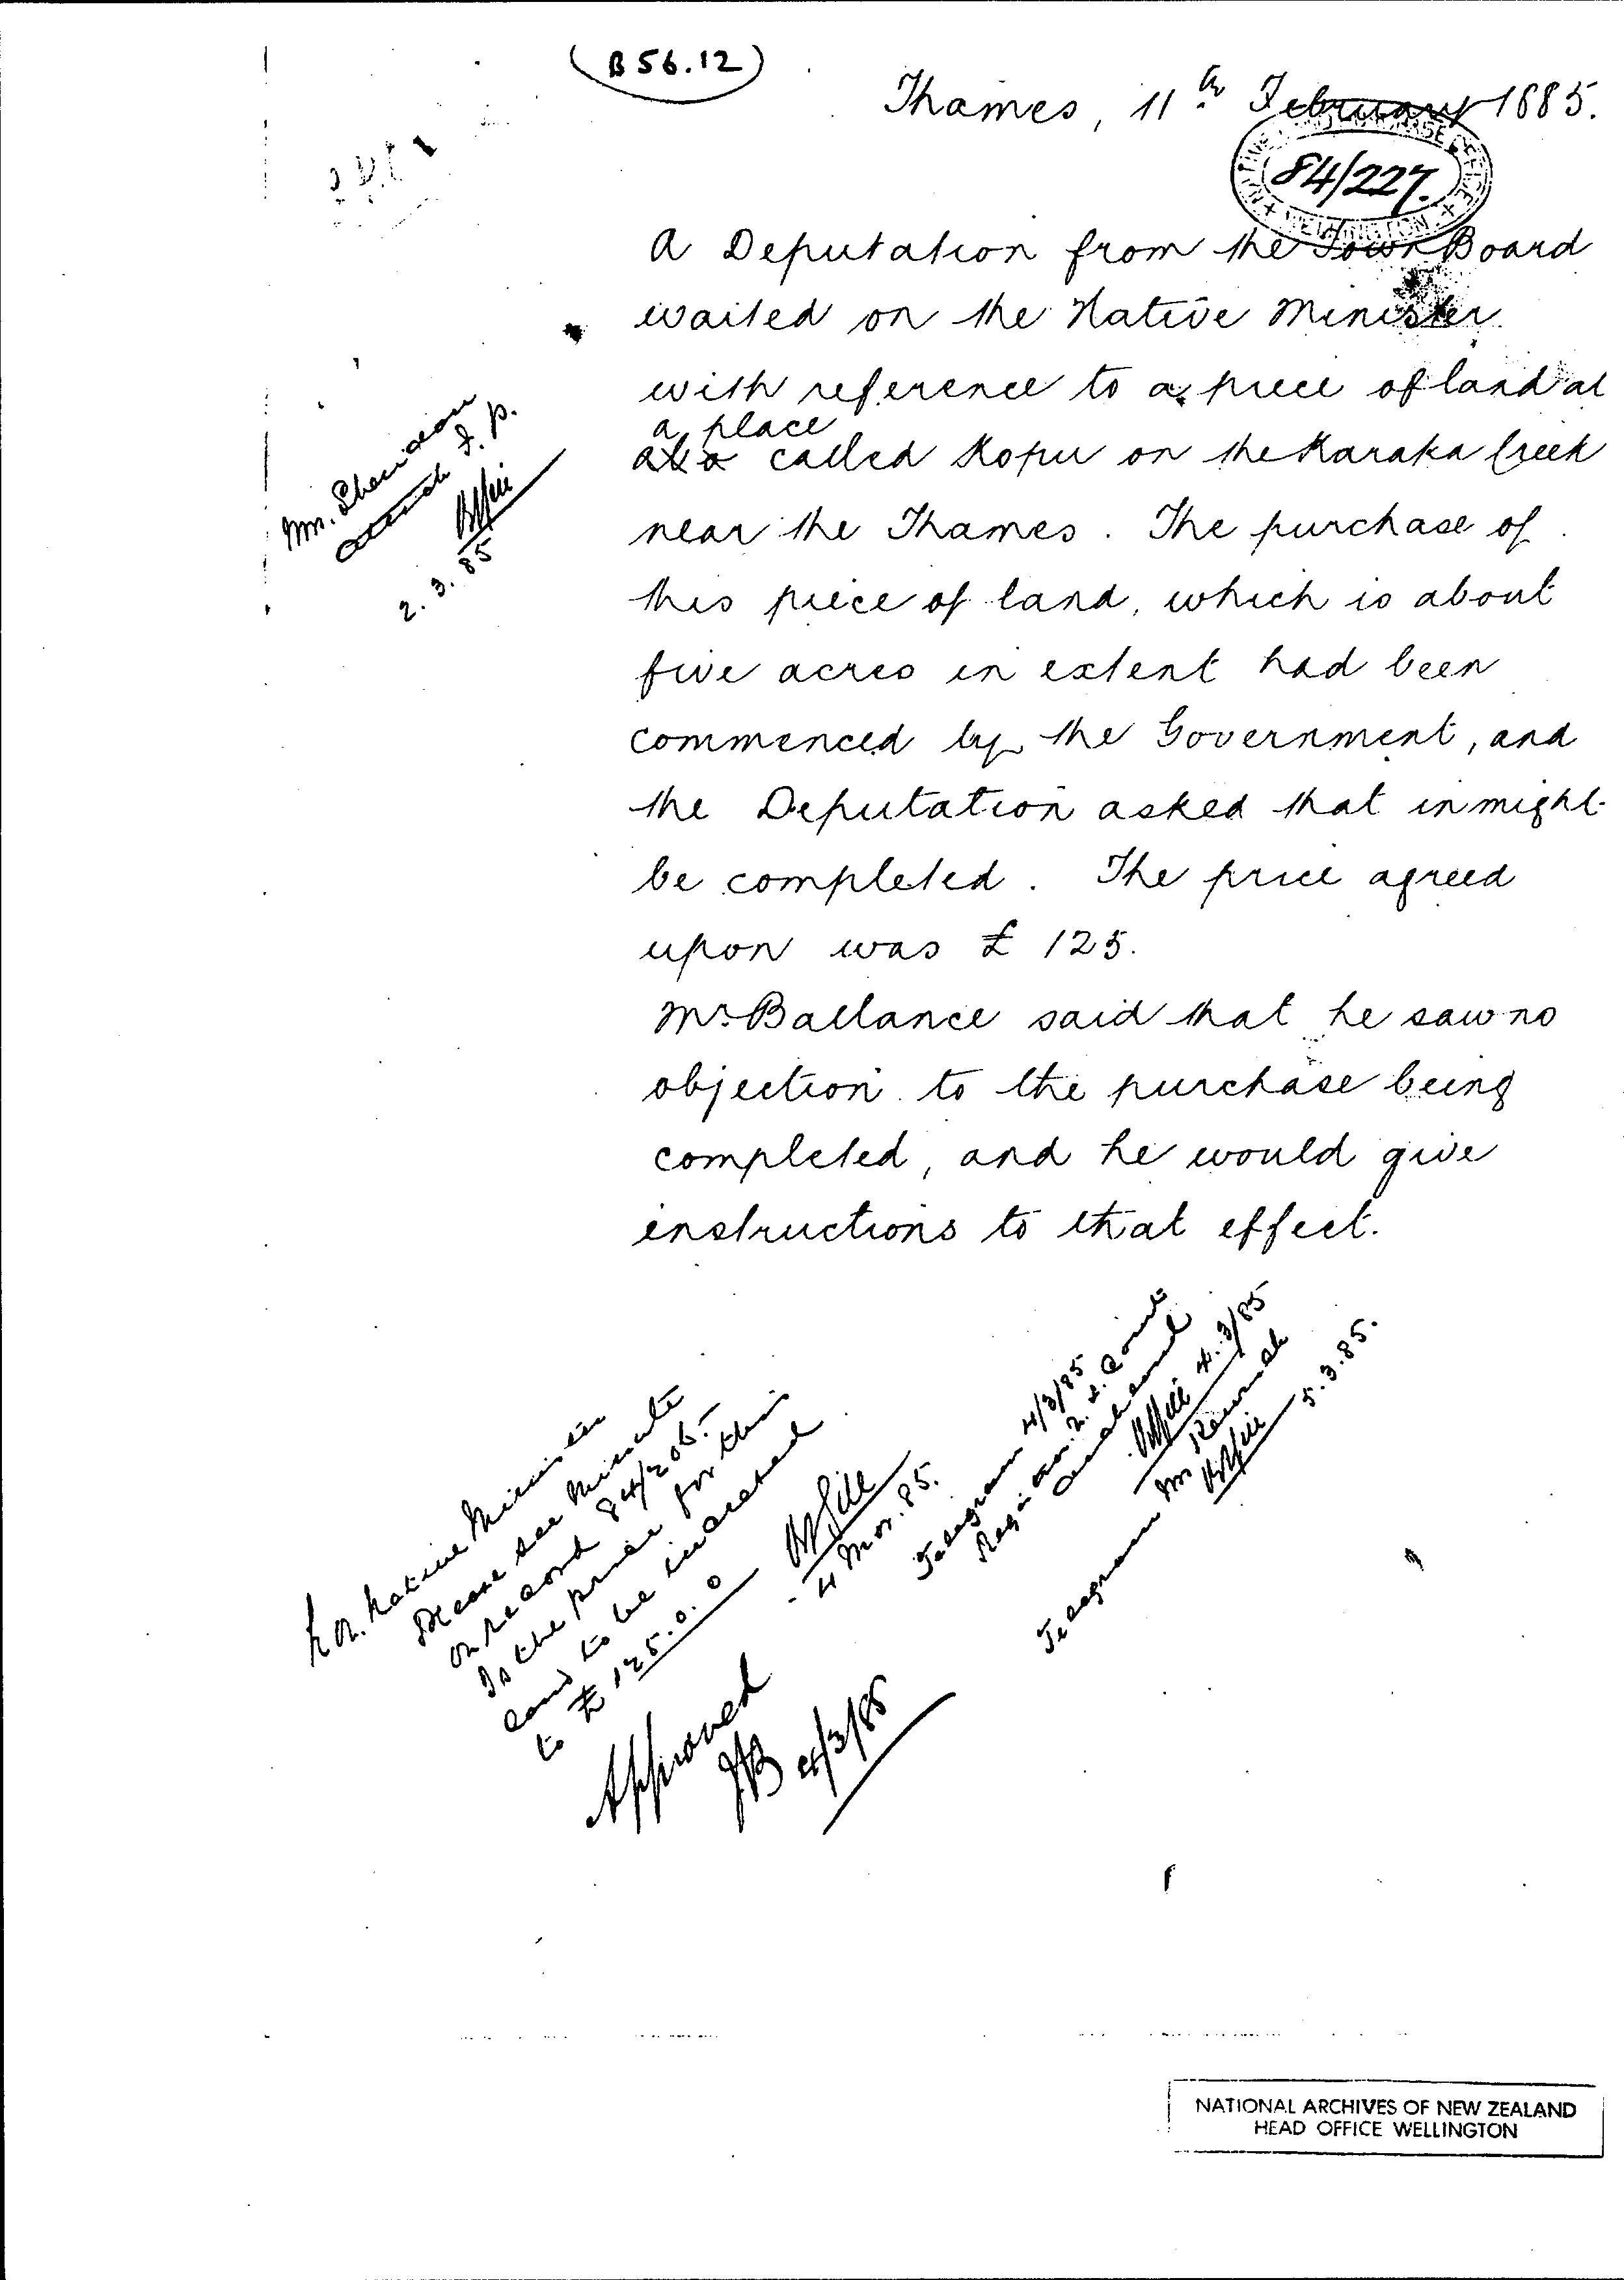 (B 56.12)
Thames, 11th February 1885.
NATIVE LAND PURCHASE OFFICE
84/227.
WELLINGTON
A Deputation from the Town Board
waited on the Native Minister
with reference to a piece of land at
a place
also called Kopu on the Karaka Creek
near the Thames. The purchase of
this piece of land, which is about
five acres in extent had been
commenced by the Government, and
the Deputation asked that in might
be completed. The price agreed
upon was £ 125.
Mr. Ballance said that he saw no
objection to the purchase being
completed, and he would give
instructions to that effect.
Mr. Sheridan
attach F. p.
2. 3. 85
Hon. Native Minister
Please see Minute
on record 84/206.
Is the price for this
land to be increased
to £ 125. 0. 0
4 Mar. 85.
Approved
JB 4/3/85
Telegram 4/3/85
4. 3/85
Telegram Mr
5. 3. 85.
NATIONAL ARCHIVES OF NEW ZEALAND
HEAD OFFICE WELLINGTON